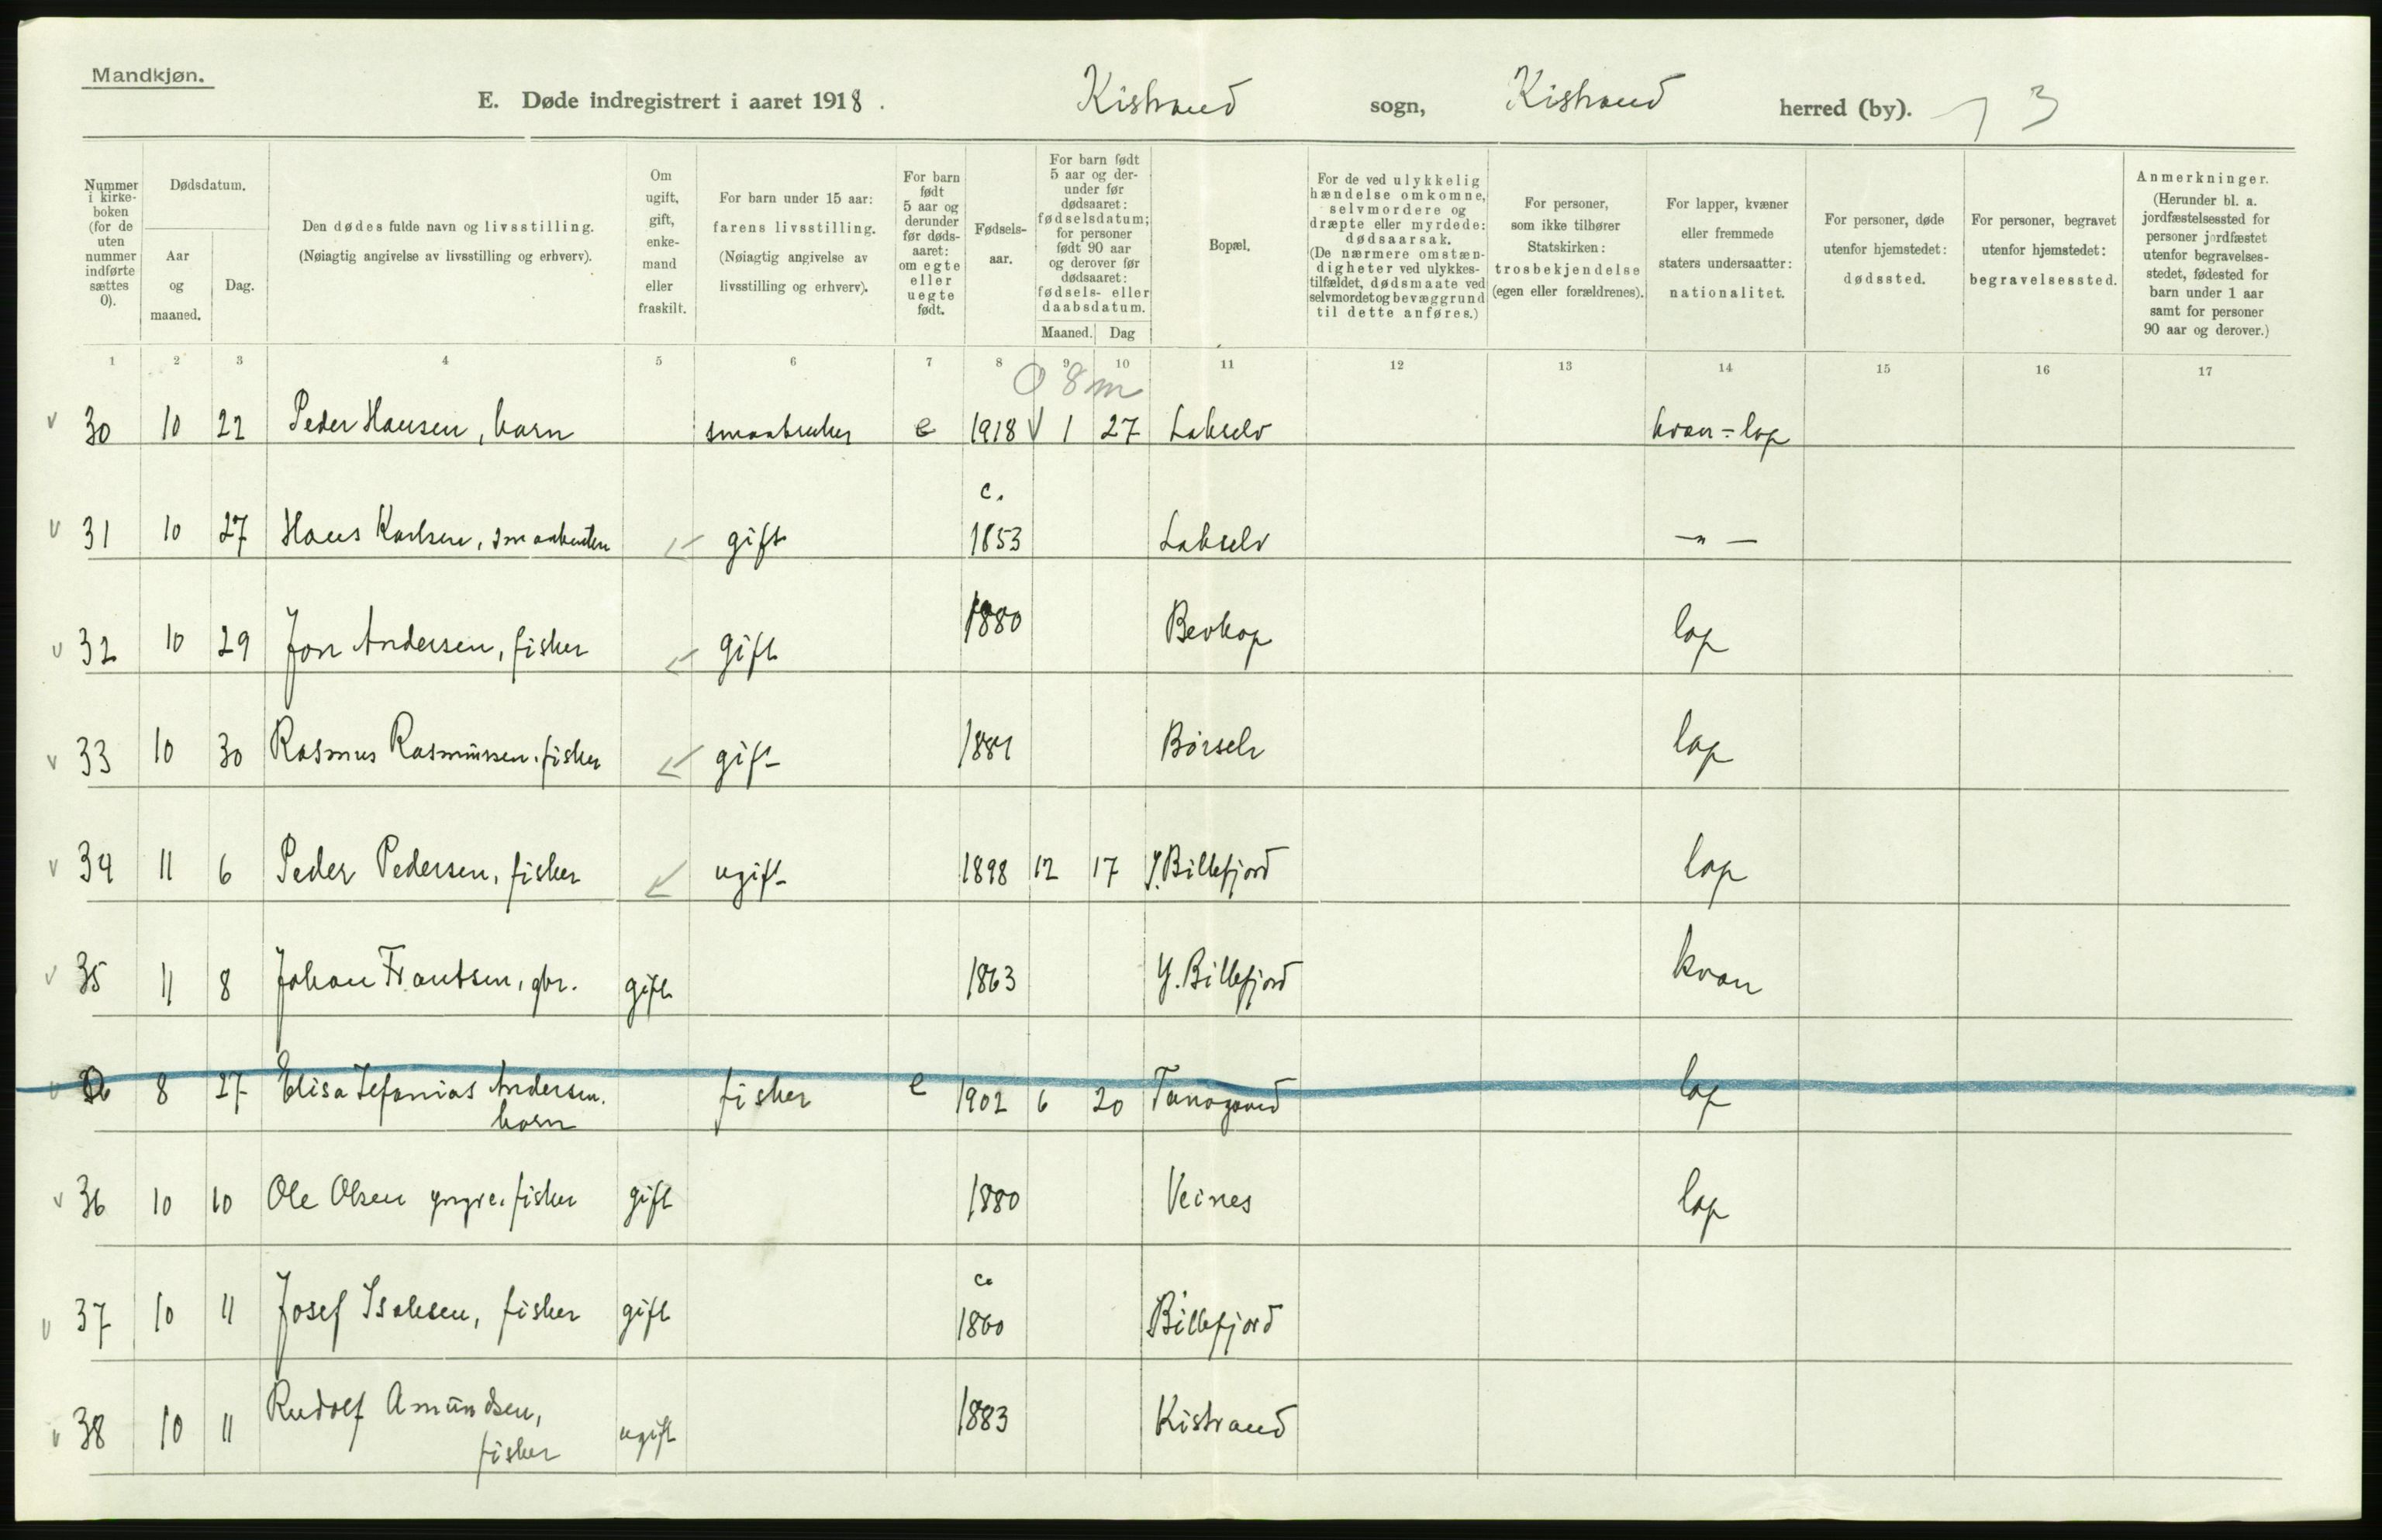 Mandkjøn.
E. Døde indregistrert i aaret 1918. Kistrand sogn, Kistrand herred (by). 3
Nummer i kirkeboken (for de uten nummer indførte sættes 0).
Dødsdatum.
Aar og maaned.
Dag.
Den dødes fulde navn og livsstilling.
(Nøiagtig angivelse av livsstilling og erhverv).
Om ugift, gift, enkemand eller fraskilt.
For barn under 15 aar:
farens livsstilling.
(Nøiagtig angivelse av livsstilling og erhverv).
For barn født 5 aar og derunder før dødsaaret: om egte eller uegte født.
Fødselsaar.
For barn født 5 aar og derunder før dødsaaret: fødselsdatum; for personer født 90 aar og derover før dødsaaret: fødsels- eller daabsdatum.
Maaned. Dag
Bopæl.
For de ved ulykkelig hændelse omkomne, selvmordere og dræpte eller myrdede: dødsaarsak.
(De nærmere omstændigheter ved ulykkestilfældet, dødsmaate ved selvmordet og bevæggrund til dette anføres.)
For personer, som ikke tilhører Statskirken: trosbekjendelse (egen eller forældrenes).
For lapper, kvæner eller fremmede staters undersaatter: nationalitet.
For personer, døde utenfor hjemstedet: dødssted.
For personer, begravet utenfor hjemstedet: begravelsessted.
Anmerkninger.
(Herunder bl. a. jordfæstelsessted for personer jordfæstet utenfor begravelsesstedet, fødested for barn under 1 aar samt for personer 90 aar og derover.)
1 2 3 4 5 6 7 8 9 10 11 12 13 14 15 16 17
0 8 m
v 30 10 22 Peder Hansen, barn smaabruker e 1918 v 1 27 Lakselv kvæn-lap
v 31 10 27 Hans Karlsen, smaabruker gift c. 1853 Lakselv — " —
v 32 10 29 Jon Andersen, fisker gift 1880 Bevkop lap
v 33 10 30 Rasmus Rasmussen, fisker gift 1881 Børselv lap
v 34 11 6 Peder Pedersen, fisker ugift 1898 12 17 Y. Billefjord lap
v 35 11 8 Johan Frantsen, gbr. gift 1863 Y. Billefjord kvæn
v 8 27 Elisa Andersen, barn fisker e 1902 6 20 lap
v 36 10 10 Ole Olsen yngre, fisker gift 1880 Veines lap
v 37 10 11 Josef Isaksen, fisker gift c. 1860 Billefjord
v 38 10 11 Rudolf Amundsen, fisker ugift 1883 Kistrand